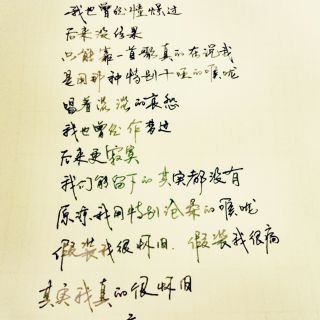 我也曾经憧憬过
后来没结果
只能靠一首歌真的在说我
是用那种特别干哑的喉咙
唱着淡淡的哀愁
我也曾经作梦过
后来更寂寞
我们能留下的其实都没有
原谅我用特别沧桑的喉咙
假装我很怀旧 假装我很痛
其实我真的很怀旧